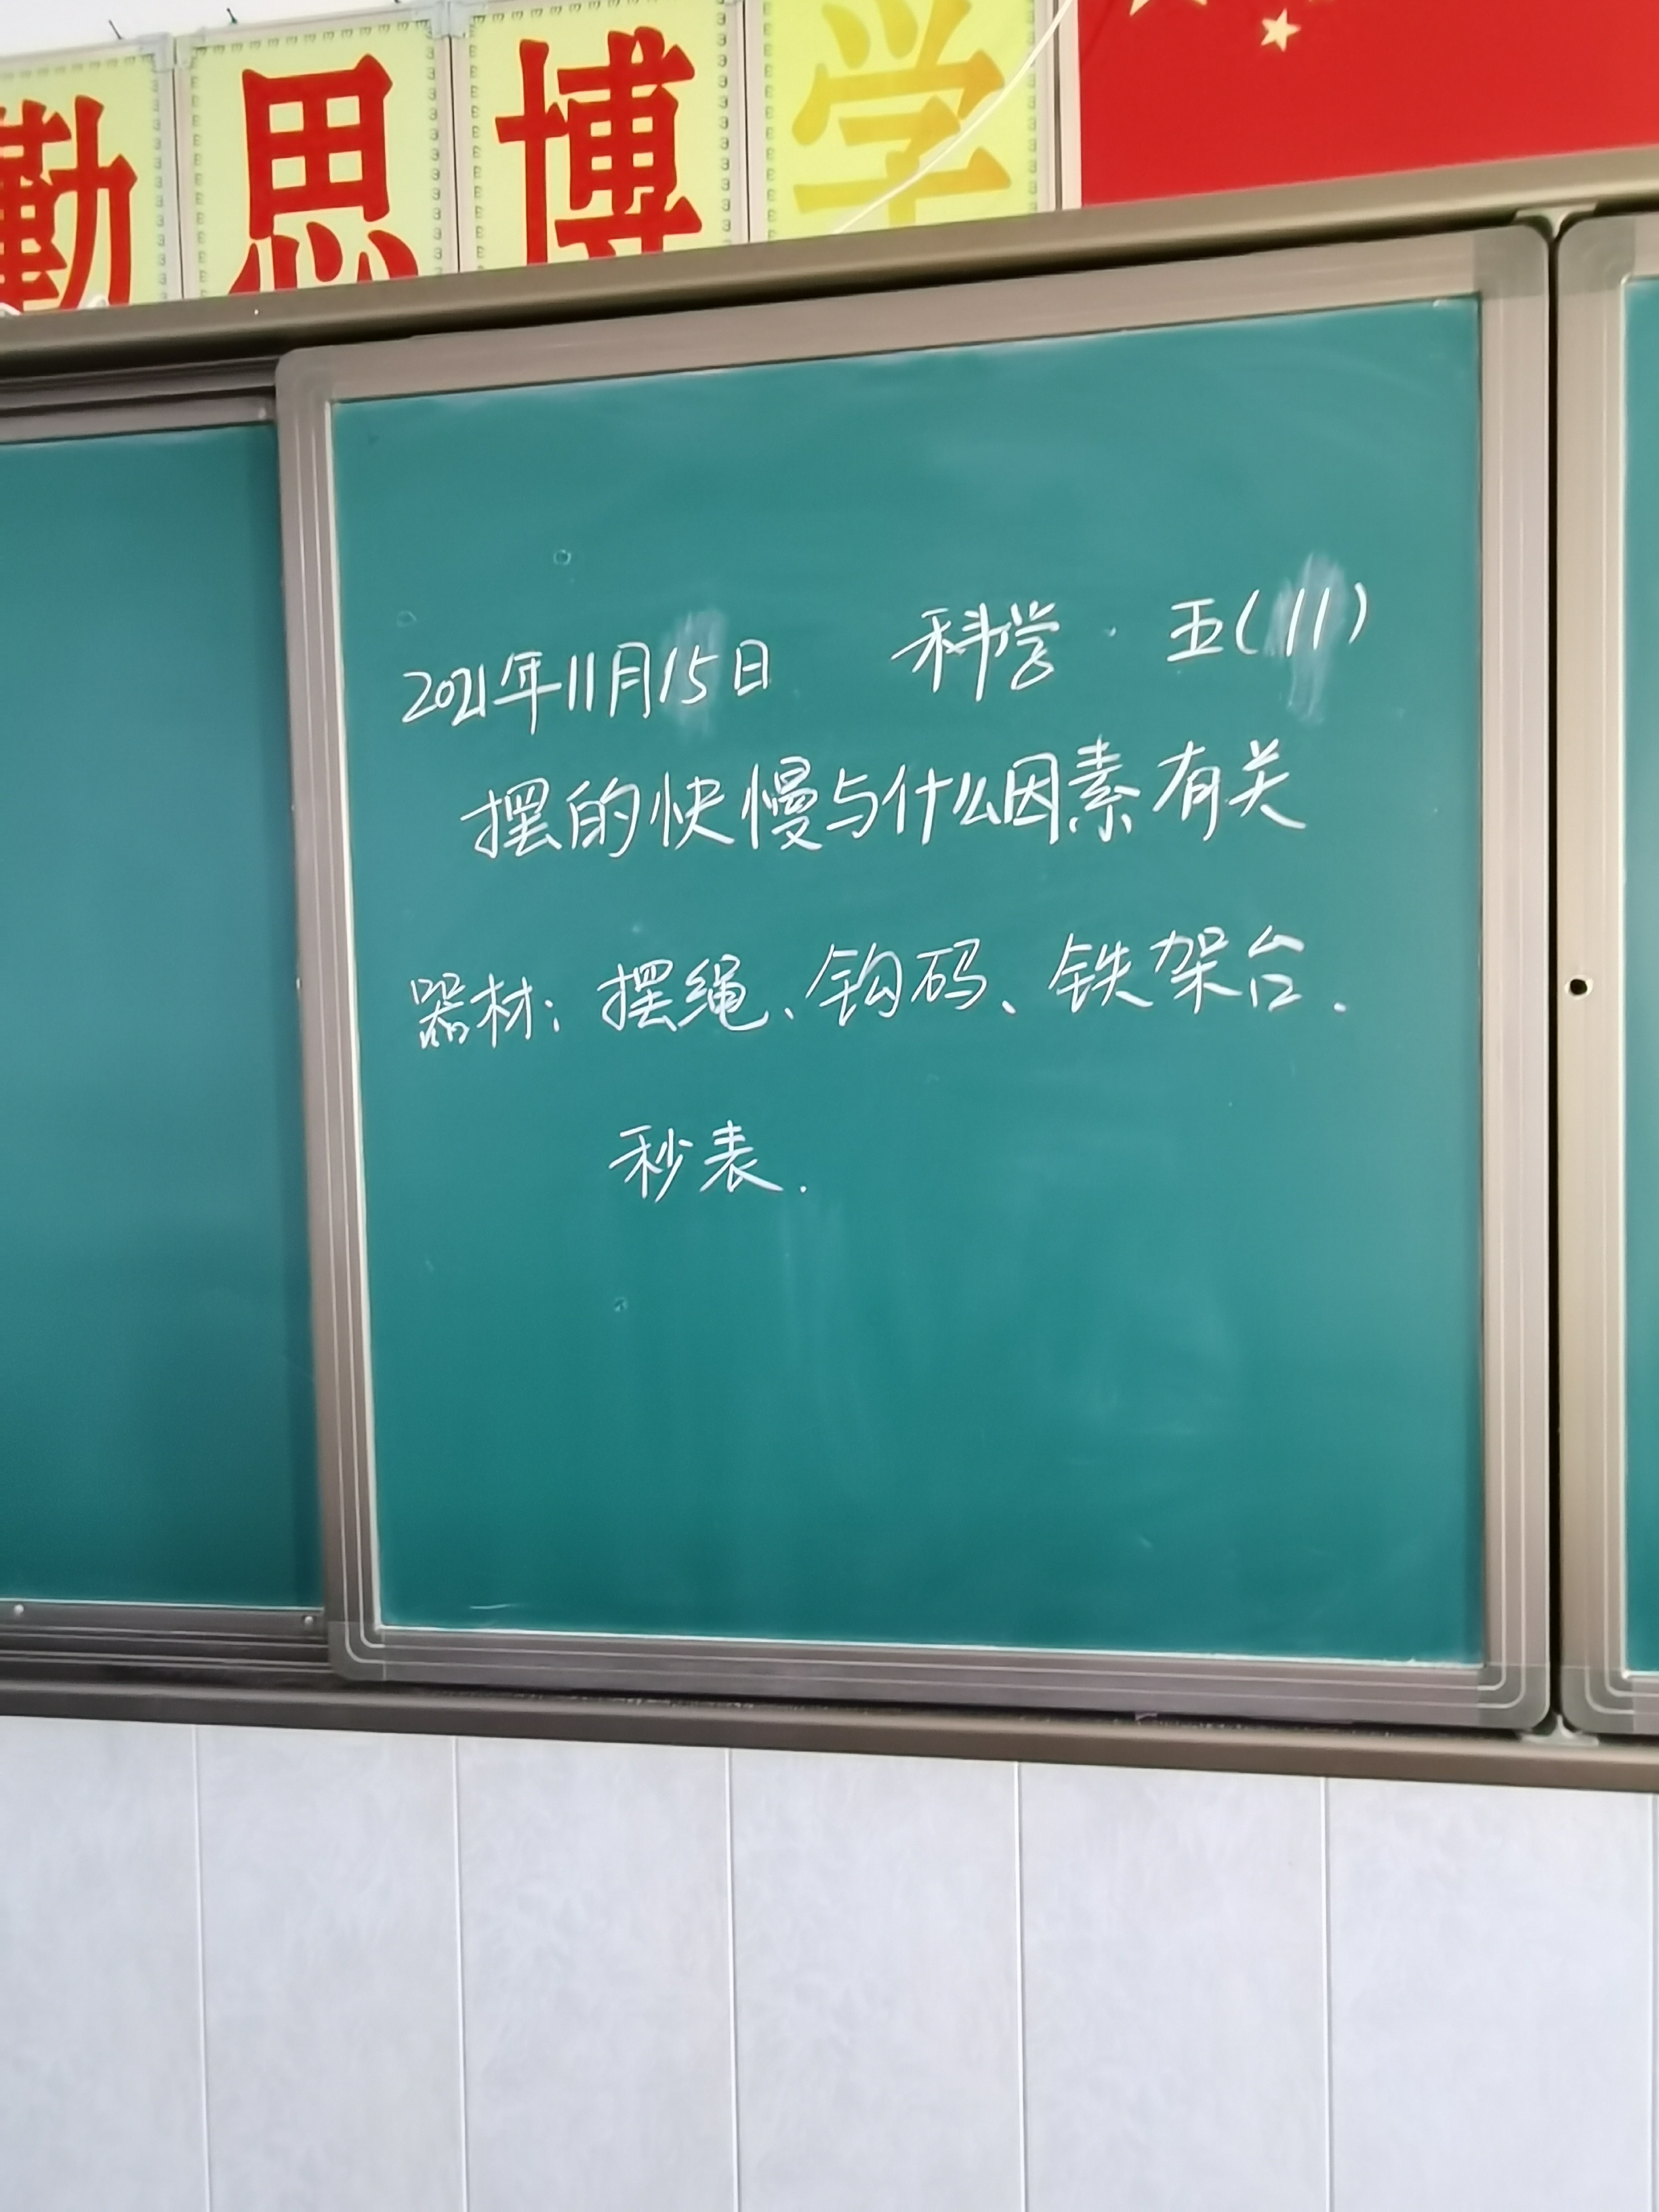 勤思博学
2021年11月15日 科学 · 五(11)
摆的快慢与什么因素有关
器材：摆绳、钩码、铁架台.
秒表.